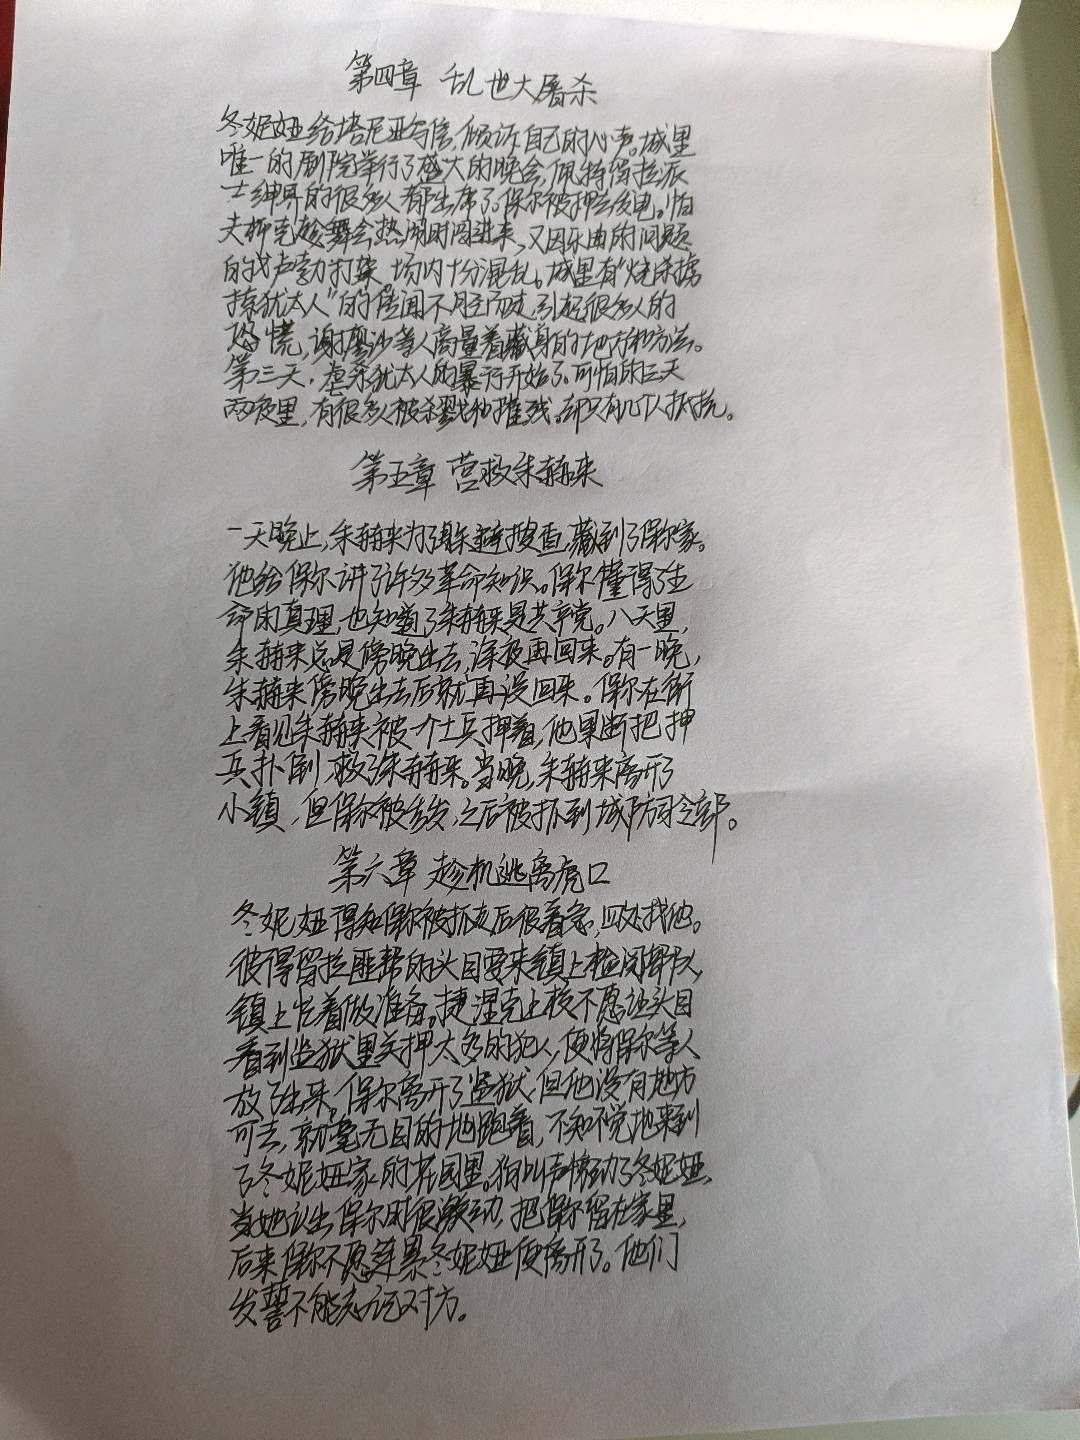 第四章 乱世大屠杀
冬妮娅给塔尼亚写信,倾诉自己的心声。城里
唯一的剧院举行了盛大的晚会,佩特留拉派
士绅界的很多人都出席了。保尔被押去发电。帕
夫柳克趁舞会热闹时闯进来,又因乐曲的问题
的 打架,场内十分混乱。城里有“烧杀掳
掠犹太人”的传闻不胫而走,引起很多人的
恐慌,谢廖沙等人商量着藏身的地方和方法。
第三天,虐杀犹太人的暴行开始了。可怕的三天
两夜里,有很多人被杀戮和摧残。却只有几个人抵抗。
第五章 营救朱赫来
一天晚上,朱赫来为了躲避搜查,藏到了保尔家。
他给保尔讲了许多革命知识。保尔懂得了生
命的真理,也知道了朱赫来是共产党。八天里,
朱赫来总是傍晚出去,深夜再回来。有一晚,
朱赫来傍晚出去后就再没回来。保尔在街
上看见朱赫来被一个士兵押着,他果断把押
兵扑倒,救了朱赫来。当晚,朱赫来离开了
小镇,但保尔被告发,之后被抓到城防司令部。
第六章 趁机逃离虎口
冬妮娅得知保尔被抓走后很着急,四处找他。
彼得留拉匪帮的头目要来镇上检阅部队,
镇上忙着做准备。捷涅克上校不愿让头目
看到监狱里关押太多的犯人,便将保尔等人
放了出来。保尔离开了监狱,但他没有地方
可去,就毫无目的地跑着,不知不觉地来到
了冬妮娅家的花园里。狗叫声惊动了冬妮娅,
当她认出保尔时很激动,把保尔留在家里,
后来保尔不愿连累冬妮娅便离开了。他们
发誓不能忘记对方。